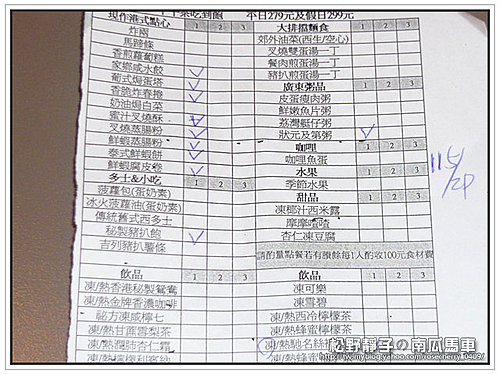 下午茶吃到飽 平日279元及假日299元
現作港式點心 1 2 3
炸兩
馬蹄條
香煎蘿蔔糕
家鄉咸水餃
葡式焗蛋塔
香脆炸春捲
奶油焗白菜
蜜汁叉燒酥
叉燒蒸腸粉
鮮蝦蒸腸粉
泰式鮮蝦餅
鮮蝦腐皮卷
多士&小吃 1 2 3
菠蘿包(蛋奶素)
冰火菠蘿油(蛋奶素)
傳統舊式西多士
秘製豬扒飽
吉列豬扒薯條
飲品
凍/熱香港秘製鴛鴦
凍/熱金牌香濃咖啡
祕方凍咸檸七
凍/熱甘蔗雪梨茶
凍/熱潤肺杏仁霜
大排擋麵食 1 2 3
郊外油菜(西生/空心)
叉燒雙蛋湯一丁
餐肉煎蛋湯一丁
豬扒煎蛋湯一丁
廣東粥品 1 2 3
皮蛋瘦肉粥
鮮嫩魚片粥
荔灣艇仔粥
狀元及第粥
咖哩 1 2 3
咖哩魚蛋
水果 1 2 3
季節水果
甜品 1 2 3
凍椰汁西米露
摩摩喳喳
杏仁凍豆腐
請酌量點餐若有賸餘每1人酌收100元食材費
飲品
凍可樂
凍雪碧
凍/熱西冷檸檬茶
凍/熱蜂蜜檸檬茶
松野靜子の南瓜馬車